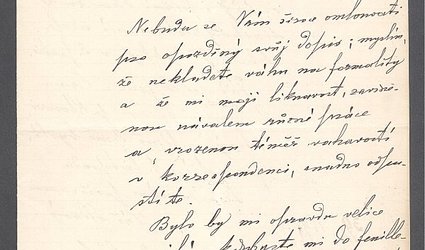 Nebudu se Vám šíroce omlouvati
pro opozdiný svůj dopis; myslím,
že nekladete váhu na formality
a že mi moji liknavost, zavině-
nou návalem různé práce
a vrozenou téměř váhavostí
v korrespondenci, snadno odpu-
stíte.
Bylo by mi opravdu velice
kdybyste mi do feuille-